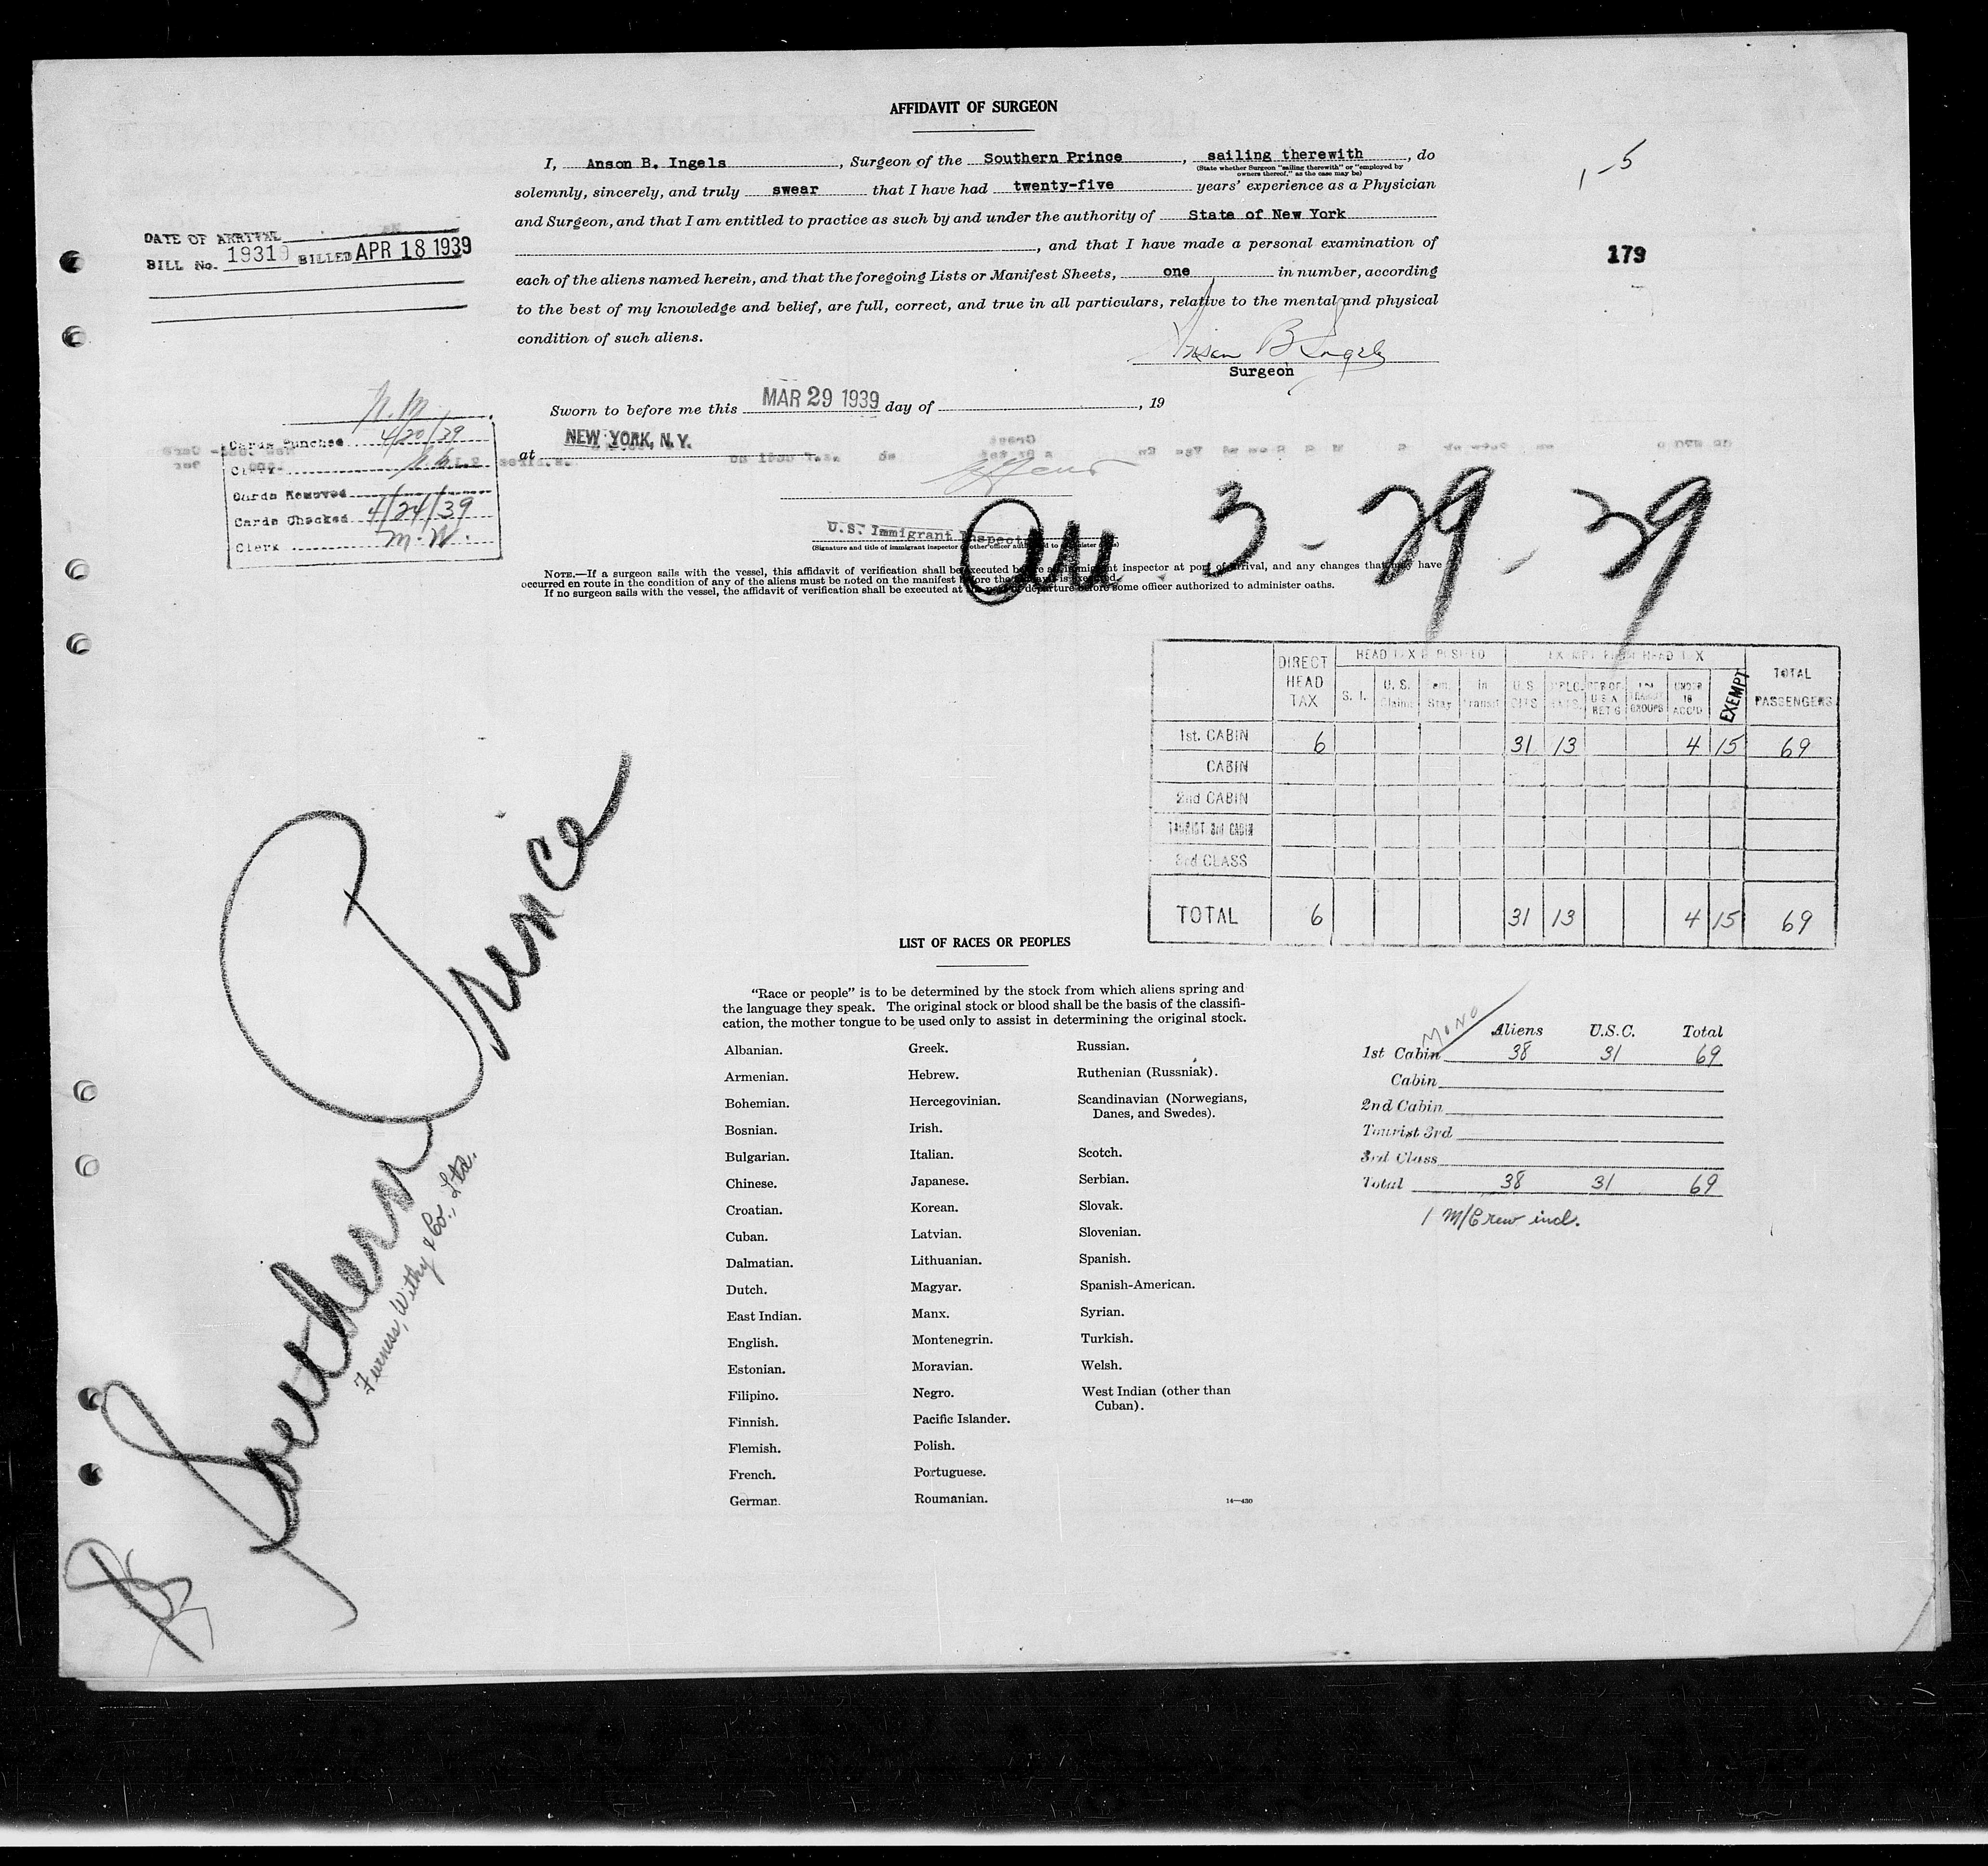 AFFIDAVIT OF SURGEON
I, Anson B. Ingels, Surgeon of the Southern Prince, sailing therewith, do
(State whether Surgeon "sailing therewith" or "employed by
owners thereof," as the case may be)
solemnly, sincerely, and truly swear that I have had twenty-five years' experience as a Physician
and Surgeon, and that I am entitled to practice as such by and under the authority of State of New York
, and that I have made a personal examination of
each of the aliens named herein, and that the foregoing Lists or Manifest Sheets, one in number, according
to the best of my knowledge and belief, are full, correct, and true in all particulars, relative to the mental and physical
condition of such aliens.
Anson B Ingels
Surgeon
1-5
179
DATE OF ARRIVAL
BILL No. 19310 BILLED APR 18 1939
Sworn to before me this MAR 29 1939 day of , 19
at NEW YORK, N. Y.
U.S. Immigrant Inspector
(Signature and title of immigrant inspector or other officer authorized to administer oaths)
N.M.
Cards Punched 4/20/39
Clerk
Cards Removed
Cards Checked 4/24/39
Clerk M.W.
3-29-39
NOTE.—If a surgeon sails with the vessel, this affidavit of verification shall be executed before an immigrant inspector at port of arrival, and any changes that may have
occurred en route in the condition of any of the aliens must be noted on the manifest before the affidavit is executed.
If no surgeon sails with the vessel, the affidavit of verification shall be executed at the port of departure before some officer authorized to administer oaths.
DIRECT HEAD TAX
HEAD TAX DEPOSITED
EXEMPT FROM HEAD TAX
TOTAL PASSENGERS
S. I. U. S. Claims Tem. Stay In Transit U. S. CITS. DIPLO. U.S.A. RET'G TRANSIT GROUPS UNDER 16 ACC'D EXEMPT
1st. CABIN 6 31 13 4 15 69
CABIN
2nd CABIN
TOURIST 3rd CABIN
3rd CLASS
TOTAL 6 31 13 4 15 69
Southern Prince
Furness, Withy & Co., Ltd.
LIST OF RACES OR PEOPLES
"Race or people" is to be determined by the stock from which aliens spring and
the language they speak. The original stock or blood shall be the basis of the classifi-
cation, the mother tongue to be used only to assist in determining the original stock.
Albanian.
Armenian.
Bohemian.
Bosnian.
Bulgarian.
Chinese.
Croatian.
Cuban.
Dalmatian.
Dutch.
East Indian.
English.
Estonian.
Filipino.
Finnish.
Flemish.
French.
German.
Greek.
Hebrew.
Hercegovinian.
Irish.
Italian.
Japanese.
Korean.
Latvian.
Lithuanian.
Magyar.
Manx.
Montenegrin.
Moravian.
Negro.
Pacific Islander.
Polish.
Portuguese.
Roumanian.
Russian.
Ruthenian (Russniak).
Scandinavian (Norwegians,
Danes, and Swedes).
Scotch.
Serbian.
Slovak.
Slovenian.
Spanish.
Spanish-American.
Syrian.
Turkish.
Welsh.
West Indian (other than
Cuban).
14—430
MONO
Aliens U.S.C. Total
1st Cabin 38 31 69
Cabin
2nd Cabin
Tourist 3rd
3rd Class
Total 38 31 69
1 M/Crew incl.